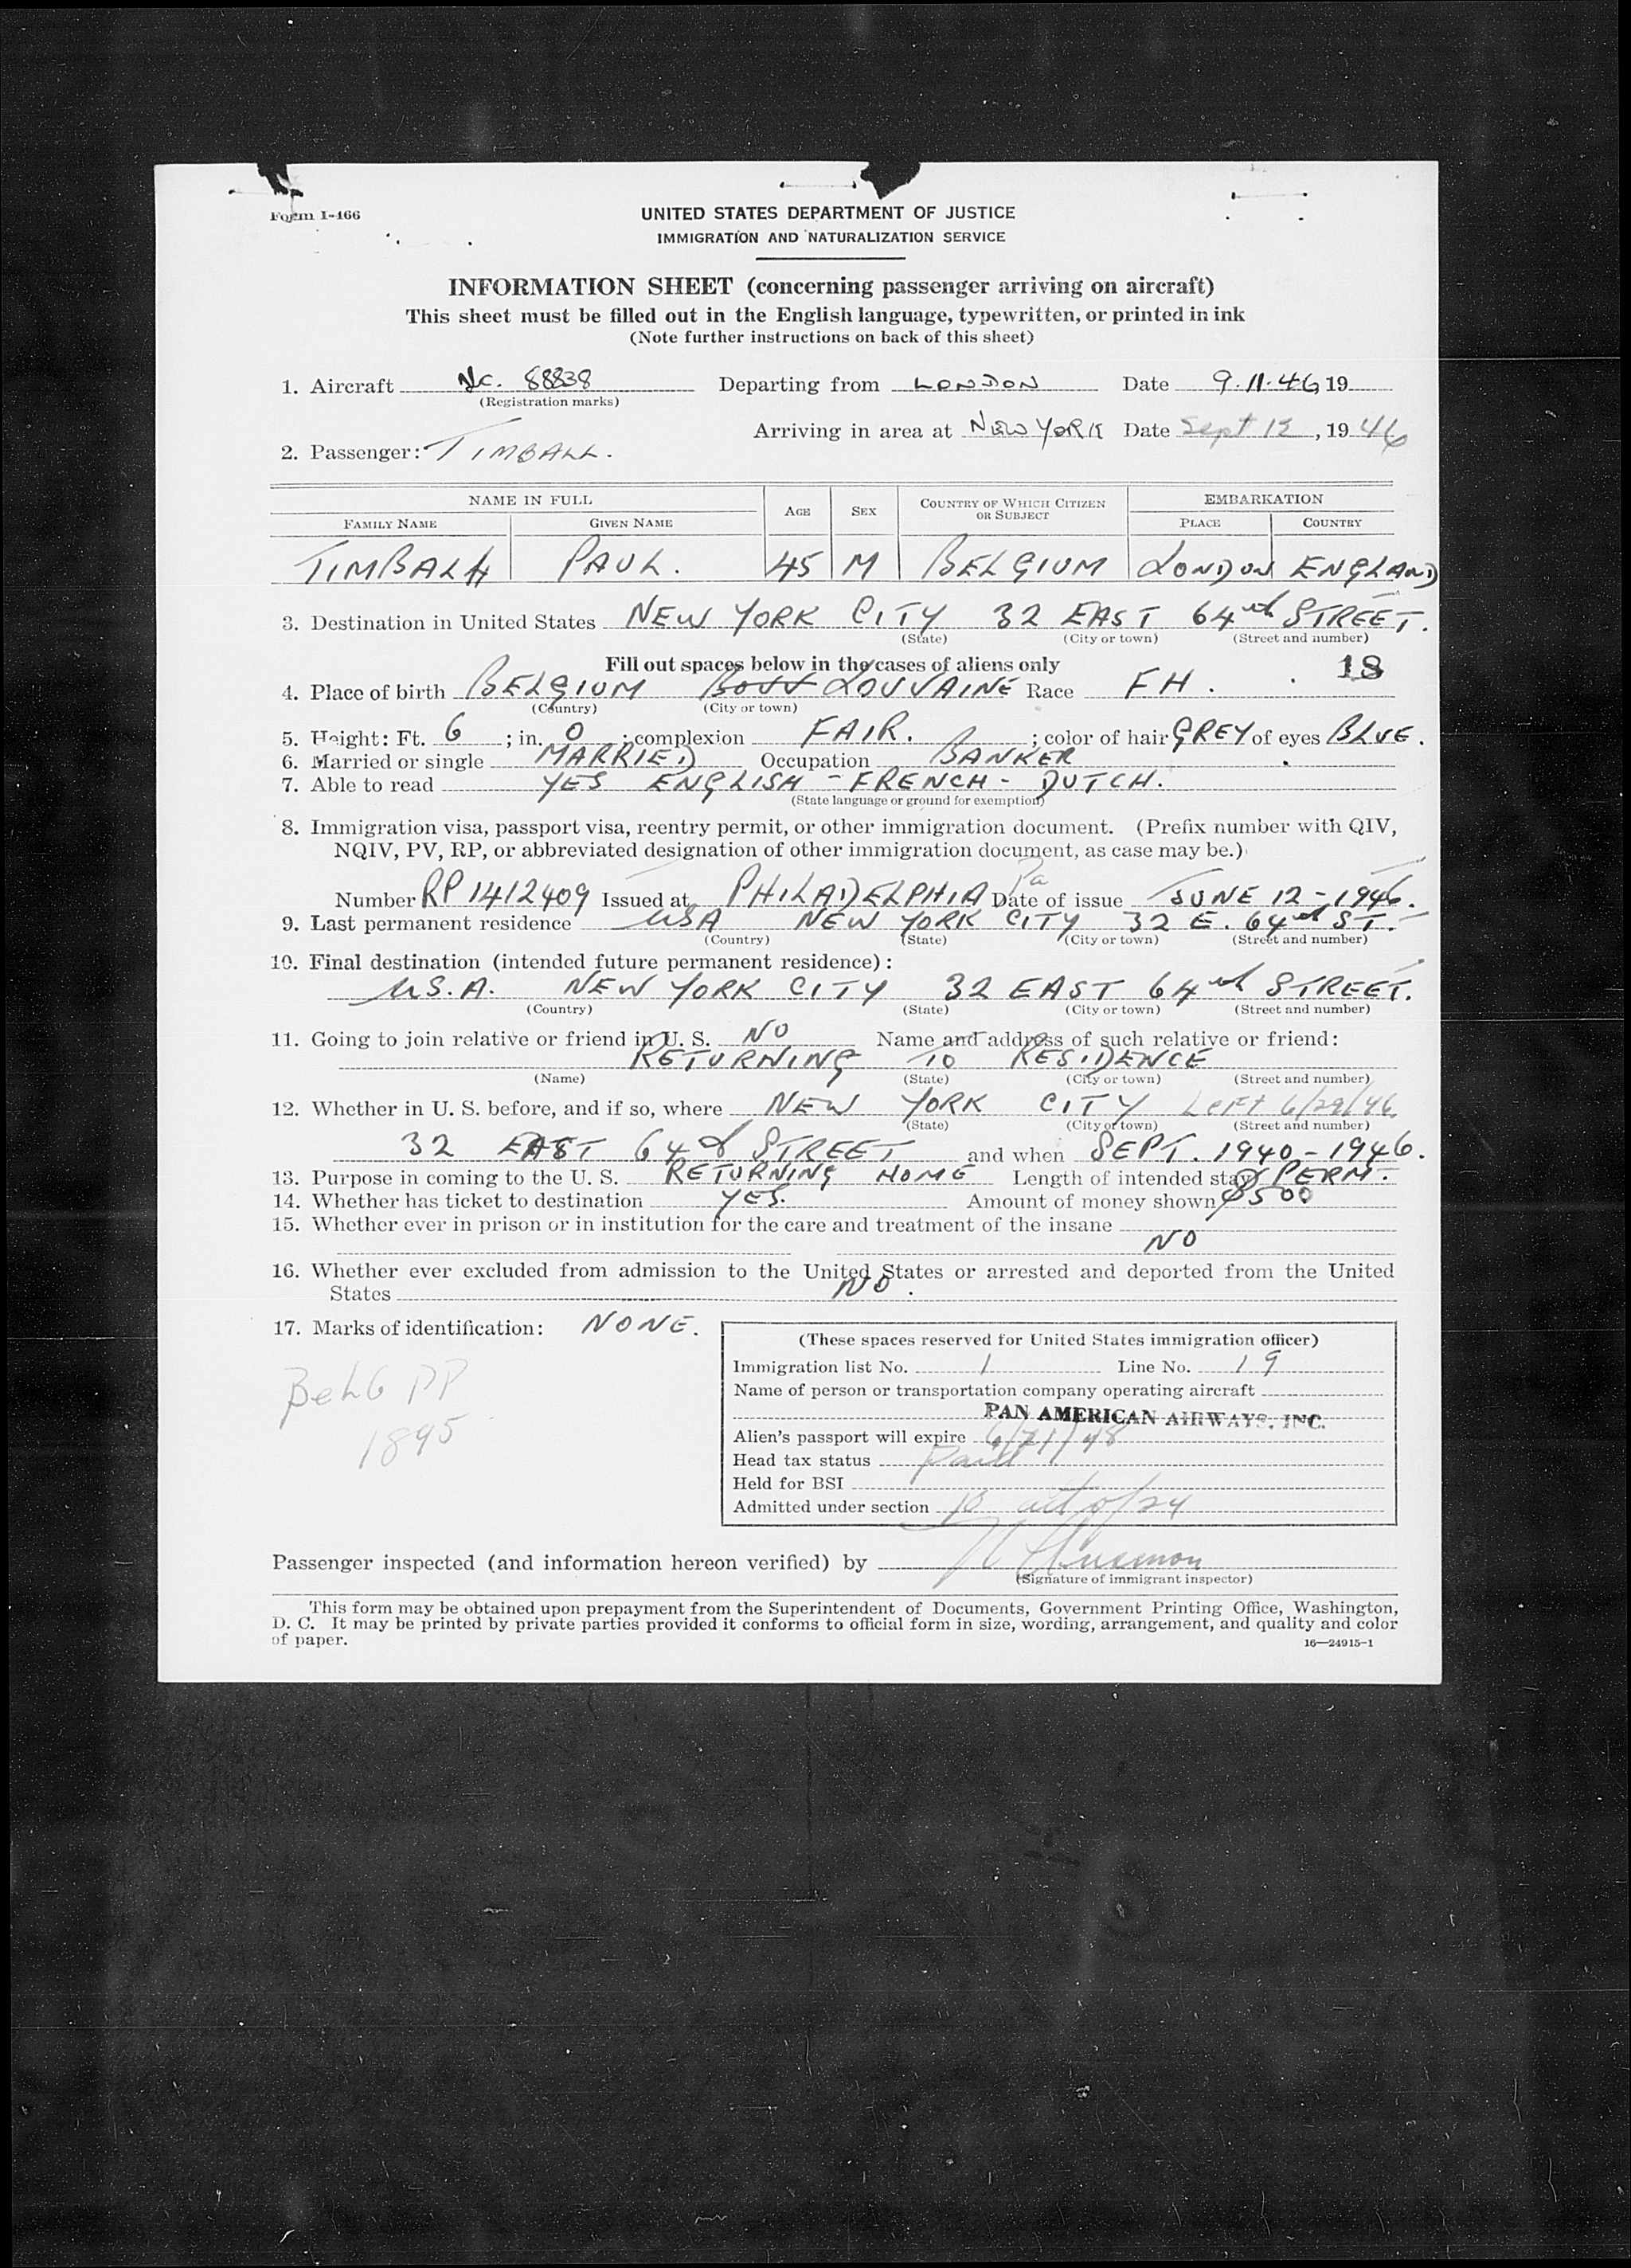 Form I-466
UNITED STATES DEPARTMENT OF JUSTICE
IMMIGRATION AND NATURALIZATION SERVICE
INFORMATION SHEET (concerning passenger arriving on aircraft)
This sheet must be filled out in the English language, typewritten, or printed in ink
(Note further instructions on back of this sheet)
1. Aircraft Nc. 88838 Departing from LONDON Date 9.11.46, 19
(Registration marks)
Arriving in area at NEW YORK Date Sept 12, 1946
2. Passenger: TIMBALL.
NAME IN FULL AGE SEX COUNTRY OF WHICH CITIZEN OR SUBJECT EMBARKATION
FAMILY NAME GIVEN NAME PLACE COUNTRY
TIMBALL PAUL. 45 M BELGIUM LONDON ENGLAND
3. Destination in United States NEW YORK CITY 32 EAST 64th STREET.
(State) (City or town) (Street and number)
Fill out spaces below in the cases of aliens only 18
4. Place of birth BELGIUM LOUVAINE Race FH.
(Country) (City or town)
5. Height: Ft. 6; in. 0; complexion FAIR.; color of hair GREY of eyes BLUE.
6. Married or single MARRIED Occupation BANKER
7. Able to read YES ENGLISH - FRENCH - DUTCH.
(State language or ground for exemption)
8. Immigration visa, passport visa, reentry permit, or other immigration document. (Prefix number with QIV,
NQIV, PV, RP, or abbreviated designation of other immigration document, as case may be.)
Number RP 1412409 Issued at PHILADELPHIA Pa Date of issue JUNE 12 - 1946.
9. Last permanent residence USA NEW YORK CITY 32 E. 64th ST.
(Country) (State) (City or town) (Street and number)
10. Final destination (intended future permanent residence):
U.S.A. NEW YORK CITY 32 EAST 64th STREET.
(Country) (State) (City or town) (Street and number)
11. Going to join relative or friend in U. S. NO Name and address of such relative or friend:
RETURNING TO RESIDENCE
(Name) (State) (City or town) (Street and number)
12. Whether in U. S. before, and if so, where NEW YORK CITY Left 6/29/46
(State) (City or town) (Street and number)
32 EAST 64th STREET and when SEPT. 1940 - 1946.
13. Purpose in coming to the U. S. RETURNING HOME Length of intended stay PERM.
14. Whether has ticket to destination YES. Amount of money shown $500
15. Whether ever in prison or in institution for the care and treatment of the insane
NO
16. Whether ever excluded from admission to the United States or arrested and deported from the United
States NO.
17. Marks of identification: NONE.
BelG PP
1895
(These spaces reserved for United States immigration officer)
Immigration list No. 1 Line No. 19
Name of person or transportation company operating aircraft
PAN AMERICAN AIRWAYS, INC.
Alien's passport will expire 6/21/48
Head tax status Paid
Held for BSI
Admitted under section act of 24
Passenger inspected (and information hereon verified) by
(Signature of immigrant inspector)
This form may be obtained upon prepayment from the Superintendent of Documents, Government Printing Office, Washington,
D. C. It may be printed by private parties provided it conforms to official form in size, wording, arrangement, and quality and color
of paper.
16—24915-1